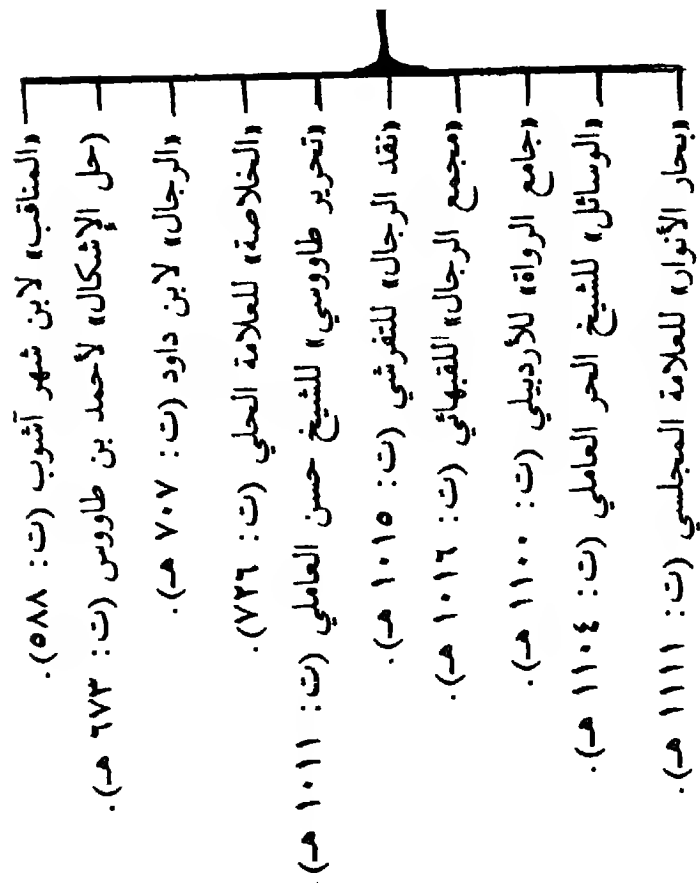 «المناقب» لابن شهر آشوب (ت: ٥٨٨).
(حل الإشكال» لأحمد بن طاووس (ت: ٦٧٣ هـ).
«الرجال» لابن داود (ت: ٧٠٧ هـ).
«الخلاصة» للعلامة الحلي (ت: ٧٢٦).
«تحرير طاووسي» للشيخ حسن العاملي (ت: ١٠١١ هـ)
«نقد الرجال» للتفرشي (ت: ١٠١٥ هـ).
«مجمع الرجال» للقبهائي (ت: ١٠١٦ هـ).
«جامع الرواة» للأردبيلي (ت: ١١٠٠ هـ).
«الوسائل» للشيخ الحر العاملي (ت: ١١٠٤ هـ).
«بحار الأنوار» للعلامة المجلسي (ت: ١١١١ هـ).